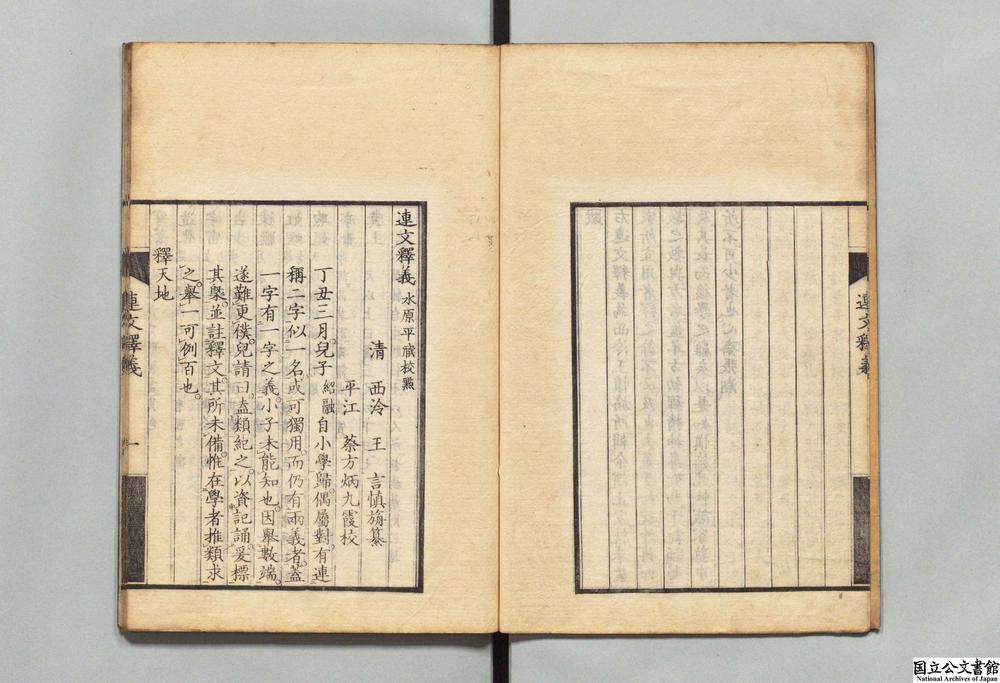 連文釋義
連文釋義 水原平臧校㸃
清 西泠 王 言慎旃纂
平江 蔡方炳九霞校
丁丑三月兒子紹融自小學歸偶屬對有連
稱二字似一名或可獨用而仍有兩義者葢
一字有一字之義小子未能知也因舉數端
遂難更僕兒請曰盍類紀之以資記誦爰標
其槩並註釋文其所未備惟在學者推類求
之舉一可例百也
釋天地
連文釋義 一
国立公文書館
National Archives of Japan